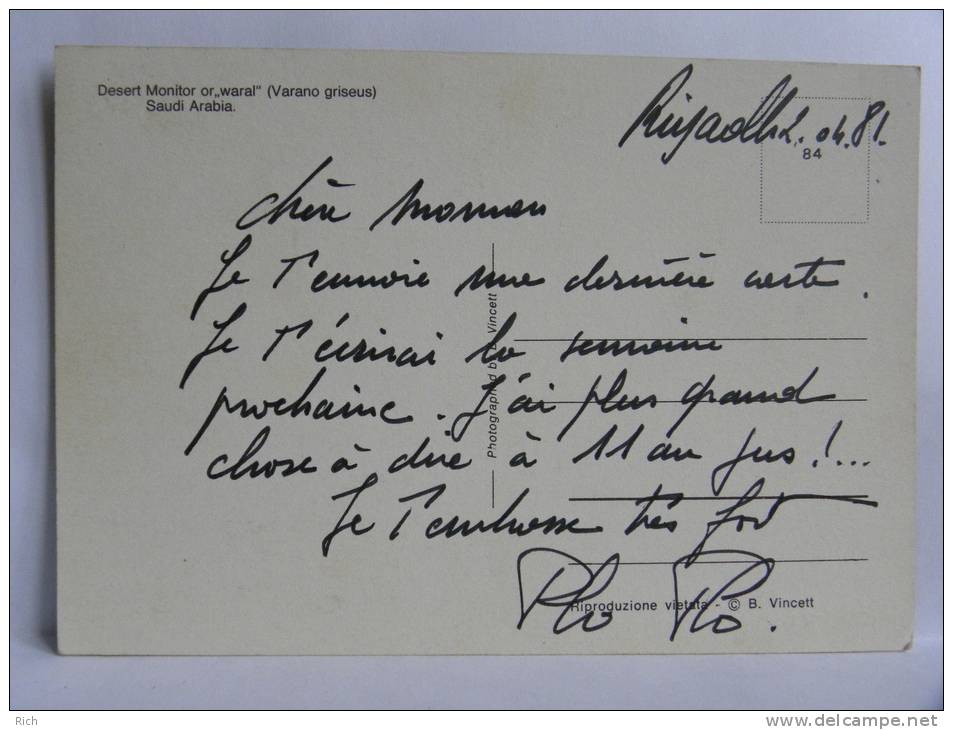 Desert Monitor or„waral" (Varano griseus)
Saudi Arabia.
Riyadh 2.04.81.
84
Chère Maman
Je T'envoie une dernière carte.
Je T'écrirai la semaine
prochaine. J'ai plus grand
chose à dire à 11 au jus !...
Je T'embrasse très fort
Photographed by B. Vincett
Riproduzione vietata - © B. Vincett
Rich
www.delcampe.net